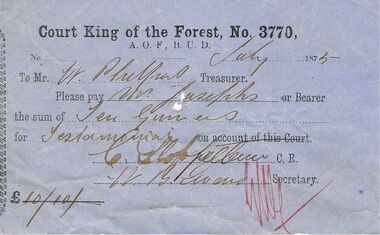 Court King of the Forest, No. 3770,
A. O. F., B. U. D.
No July 1875
To Mr. W. Treasurer.
Please pay Mr Josephs or Bearer
the sum of Ten Guineas
for Testimonial on account of this Court.
C. C. R.
W. B. Secretary.
£10/10/